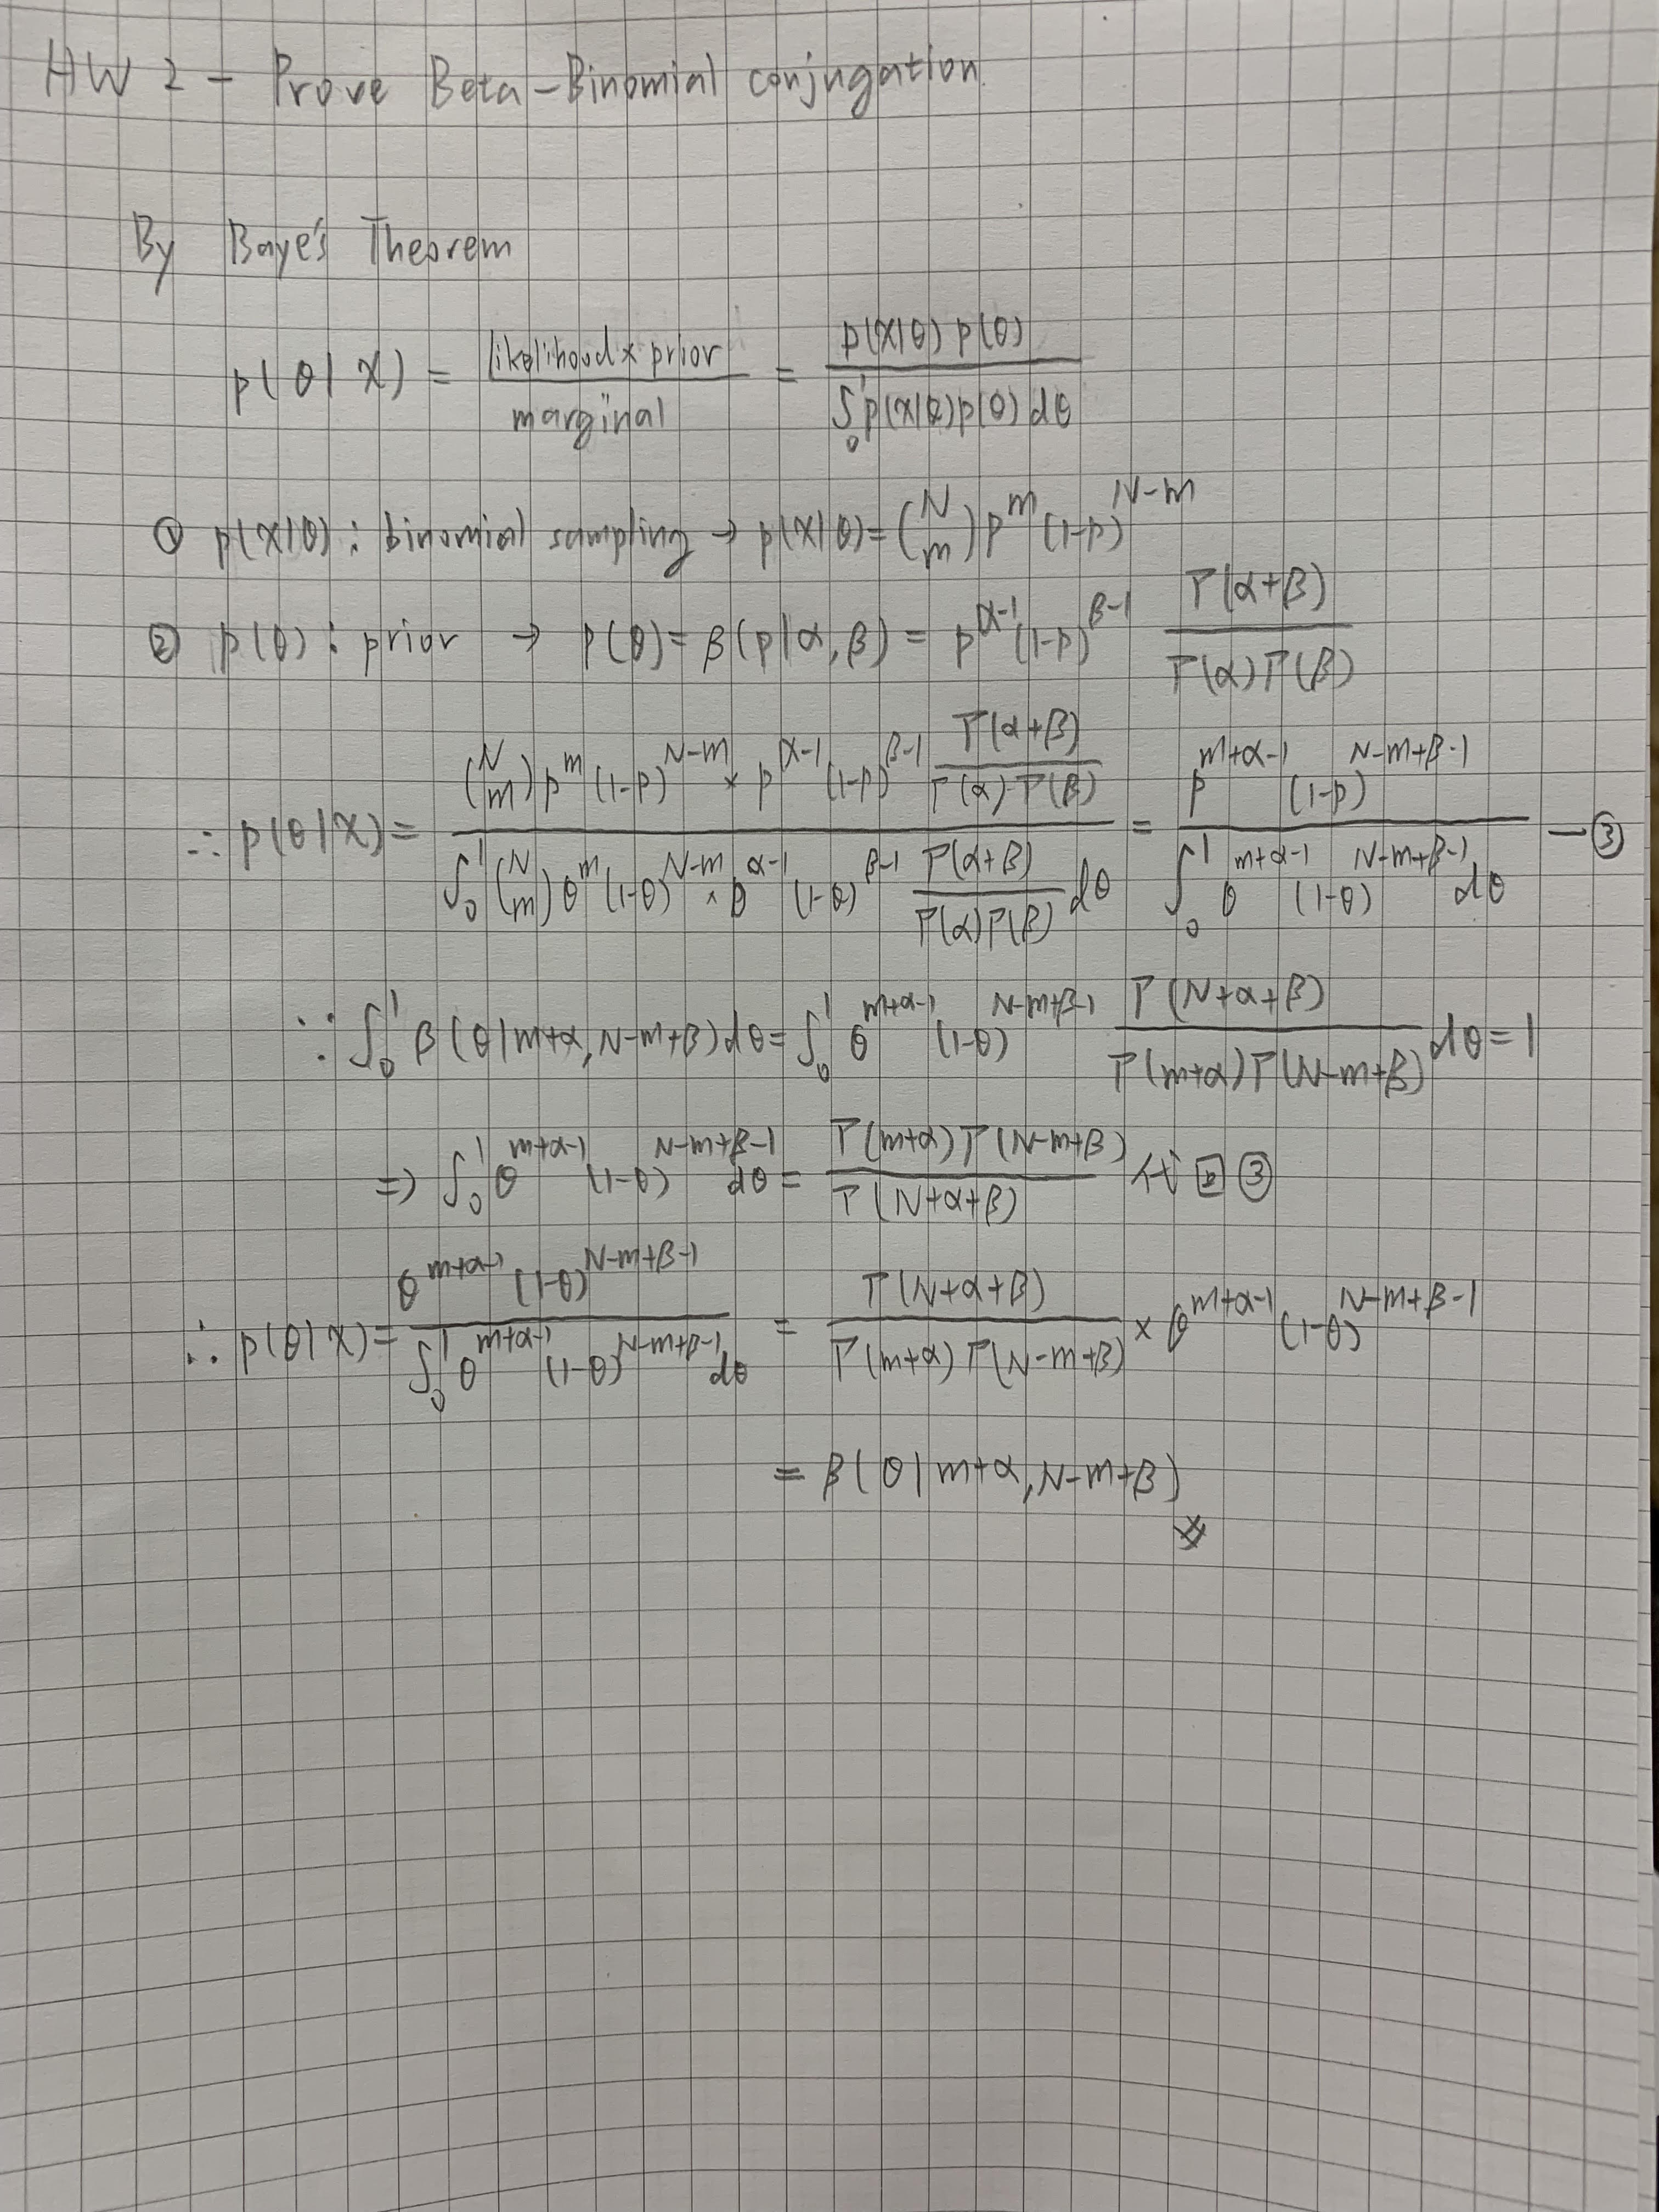 HW 2 - Prove Beta-Binomial conjugation.
By Baye's Theorem
p(θ|X) = likelihood × prior / marginal = p(X|θ) p(θ) / ∫₀¹ p(X|θ)p(θ) dθ
① p(X|θ) : binomial sampling → p(X|θ) = (N m) p^m (1-p)^(N-m)
② p(θ) : prior → p(θ) = β(p|α,β) = p^(α-1) (1-p)^(β-1) Γ(α+β) / Γ(α)Γ(β)
∴ p(θ|X) = (N m) p^m (1-p)^(N-m) × p^(α-1) (1-p)^(β-1) Γ(α+β)/Γ(α)·Γ(β) / ∫₀¹ (N m) θ^m (1-θ)^(N-m) × θ^(α-1) (1-θ)^(β-1) Γ(α+β)/Γ(α)Γ(β) dθ = p^(m+α-1) (1-p)^(N-m+β-1) / ∫₀¹ θ^(m+α-1) (1-θ)^(N-m+β-1) dθ — ③
∵ ∫₀¹ β(θ|m+α, N-m+β) dθ = ∫₀¹ θ^(m+α-1) (1-θ)^(N-m+β-1) Γ(N+α+β) / Γ(m+α)Γ(N-m+β) dθ = 1
⇒ ∫₀¹ θ^(m+α-1) (1-θ)^(N-m+β-1) dθ = Γ(m+α)Γ(N-m+β) / Γ(N+α+β) 代回 ③
∴ p(θ|X) = θ^(m+α-1) (1-θ)^(N-m+β-1) / ∫₀¹ θ^(m+α-1) (1-θ)^(N-m+β-1) dθ = Γ(N+α+β) / Γ(m+α)Γ(N-m+β) × θ^(m+α-1) (1-θ)^(N-m+β-1)
= β(θ|m+α, N-m+β)